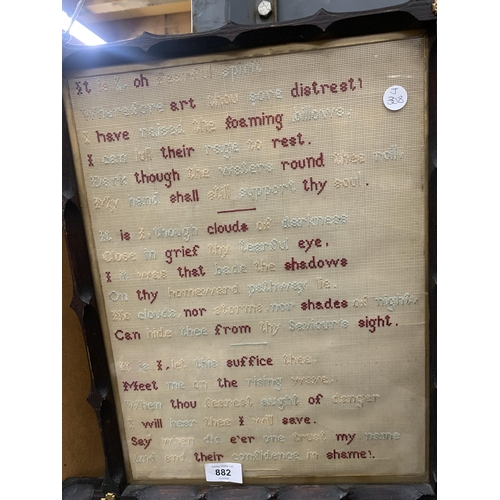 It is I, oh fearful spirit
Wherefore art thou sore distrest!
I have raised the foaming billows.
I can lull their rage to rest.
Dark though the waters round thee roll.
My hand shall still support thy soul.
It is I, though clouds of darkness
Close in grief thy tearful eye,
I it was that bade the shadows
On thy homeward pathway lie.
No clouds, nor storms, nor shades of night,
Can hide thee from thy Saviours sight.
It is I, let this suffice thee
Meet me on the rising wave.
When thou fearest aught of danger
I will hear thee I will save.
Say when did e'er one trust my name
And end their confidence in shame!.
J
308
882